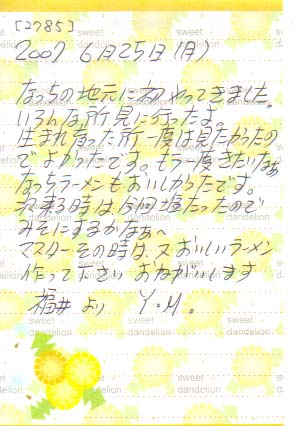 [2785]
2007 6月25日(月)
なっちの地元に初やってきました。
いろんな所見に行ったよ。
生まれ育った所一度は見たかったの
でよかったです。もう一度きたいなぁ
なっちラーメンもおいしかったです。
次来る時は今回塩だったので
みそにするかなぁ～
マスターその時は又おいしいラーメン
作ってください おねがいします
福井より Y.M.
sweet
dandelion